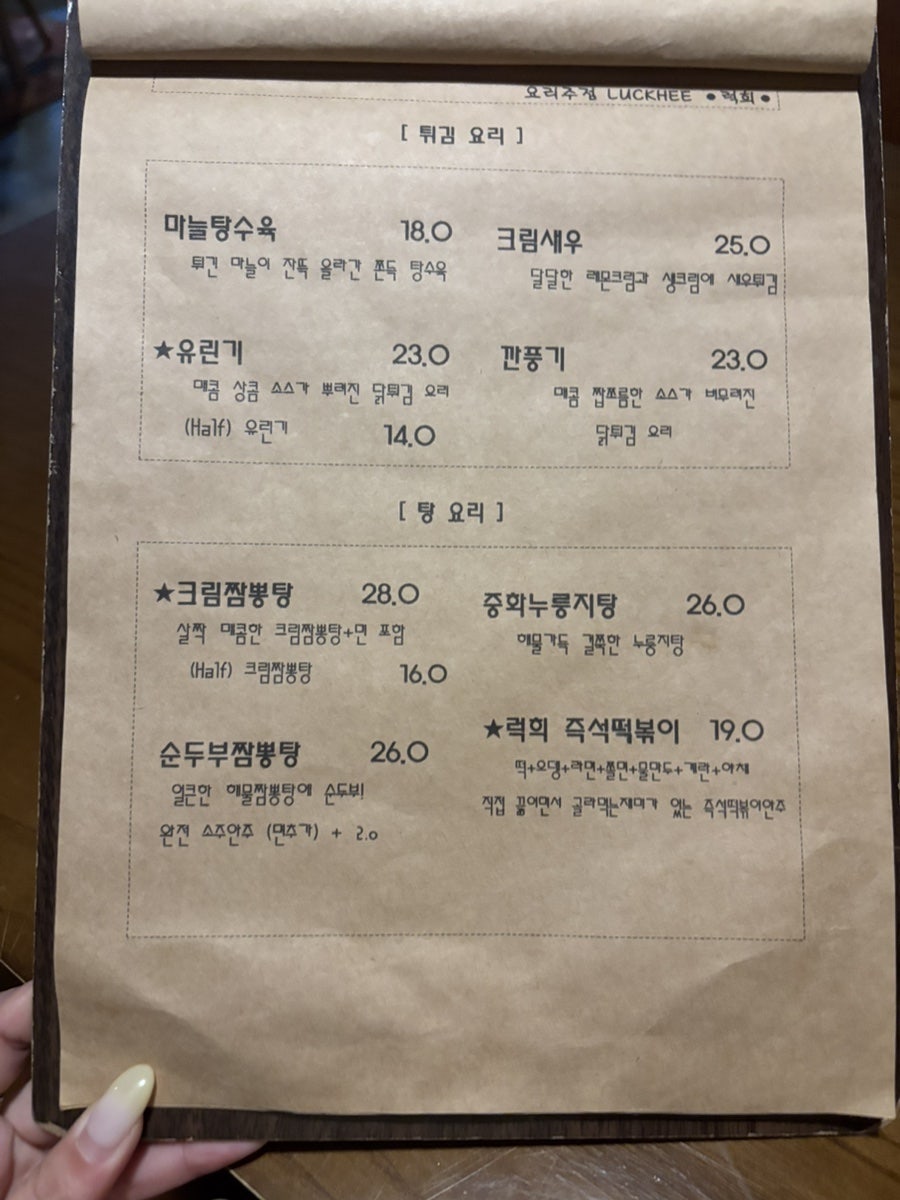 요리주점 LUCKHEE ●럭희●
[ 튀김 요리 ]
마늘탕수육 18.0
튀긴 마늘이 잔뜩 올라간 쫀득 탕수육
크림새우 25.0
달달한 레몬크림과 생크림에 새우튀김
★유린기 23.0
매콤 상콤 소스가 뿌려진 닭튀김 요리
(Half) 유린기 14.0
깐풍기 23.0
매콤 짭쪼름한 소스가 버무려진
닭튀김 요리
[ 탕 요리 ]
★크림짬뽕탕 28.0
살짝 매콤한 크림짬뽕탕+면 포함
(Half) 크림짬뽕탕 16.0
중화누룽지탕 26.0
해물가득 걸쭉한 누룽지탕
순두부짬뽕탕 26.0
얼큰한 해물짬뽕탕에 순두부!
완전 소주안주 (면추가) + 2.0
★럭희 즉석떡볶이 19.0
떡+오뎅+라면+쫄면+물만두+계란+야채
직접 끓이면서 골라먹는재미가 있는 즉석떡볶이안주